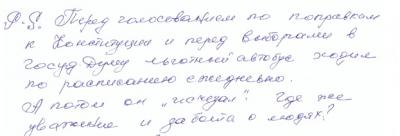 P.S. Перед голосованием по поправкам
к Конституции и перед выборами в
Госуд Думу льготный автобус ходил
по расписанию ежедневно.
А потом он „исчезал". Где же
уважение и забота о людях?